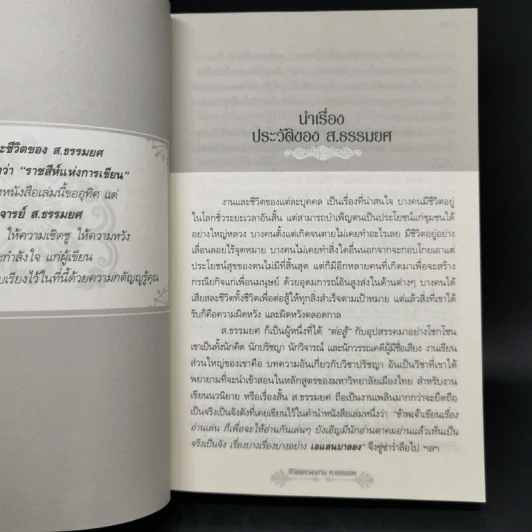 ะชีวิตของ ส.ธรรมยศ
ว่า "ราชสีห์แห่งการเขียน"
งหนังสือเล่มนี้ขออุทิศ แด่
จารย์ ส.ธรรมยศ
ให้ความเชิดชู ให้ความหวัง
ะกำลังใจ แก่ผู้เขียน
บเรียงไว้ในที่นี้ด้วยความกตัญญูรู้คุณ
นำเรื่อง
ประวัติของ ส.ธรรมยศ
งานและชีวิตของแต่ละบุคคล เป็นเรื่องที่น่าสนใจ บางคนมีชีวิตอยู่
ในโลกชั่วระยะเวลาอันสั้น แต่สามารถบำเพ็ญตนเป็นประโยชน์แก่ชุมชนได้
อย่างใหญ่หลวง บางคนตั้งแต่เกิดจนตายไม่เคยทำอะไรเลย มีชีวิตอยู่อย่าง
เลื่อนลอยไร้จุดหมาย บางคนไม่เคยทำสิ่งใดอื่นนอกจากจะกอบโกยเอาแต่
ประโยชน์สุขของตนไม่มีที่สิ้นสุด แต่ก็มีอีกหลายคนที่เกิดมาเพื่อจะสร้าง
กรณียกิจแก่เพื่อนมนุษย์ ด้วยอุดมการณ์อันสูงส่งในด้านต่างๆ บางคนได้
เสียสละชีวิตทั้งชีวิตเพื่อต่อสู้ให้ทุกสิ่งสำเร็จตามเป้าหมาย แต่แล้วสิ่งที่เขาได้
รับก็คือความผิดหวัง และผิดหวังตลอดกาล
ส.ธรรมยศ ก็เป็นผู้หนึ่งที่ได้ "ต่อสู้" กับอุปสรรคมาอย่างโชกโชน
เขาเป็นทั้งนักคิด นักปรัชญา นักวิจารณ์ และนักวรรณคดีผู้มีชื่อเสียง งานเขียน
ส่วนใหญ่ของเขาคือ บทความอันเกี่ยวกับวิชาปรัชญา อันเป็นวิชาที่เขาได้
พยายามที่จะนำเข้าสอนในหลักสูตรของมหาวิทยาลัยเมืองไทย สำหรับงาน
เขียนนวนิยาย หรือเรื่องสั้น ส.ธรรมยศ ถือเป็นงานเพลินมากกว่าจะยึดถือ
เป็นจริงเป็นจังดังที่เคยเขียนไว้ในคำนำหนังสือเล่มหนึ่งว่า "ข้าพเจ้าเขียนเรื่อง
อ่านเล่น ก็เพื่อจะให้อ่านกันเล่นๆ บังเอิญมีนักอ่านตาคมอ่านแล้วเห็นเป็น
จริงเป็นจัง เรื่องบางเรื่องบางอย่าง เอแลนบาลอง" จึงซู่ซ่าร่ำลือไป ฯลฯ
ชีวิตและผลงาน ส.ธรรมยศ